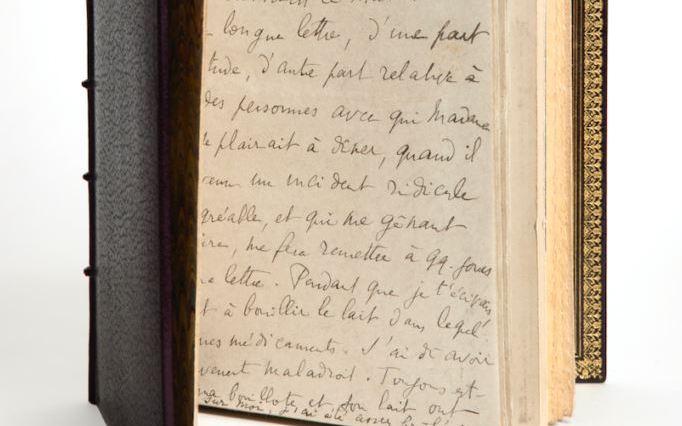 longue lettre, d'une part
tude, d'autre part relative à
des personnes avec qui Madame
plairait à dîner, quand il
venu un incident ridicule
gréable, et qui me gênant
ire, me fera remettre à qq. jours
lettre. Pendant que je t'écrivais
t à bouillir le lait dans lequel
mes médicaments. J'ai dû avoir
vement maladroit. Toujours est-
ma bouillote et son lait ont
sur moi, j'ai